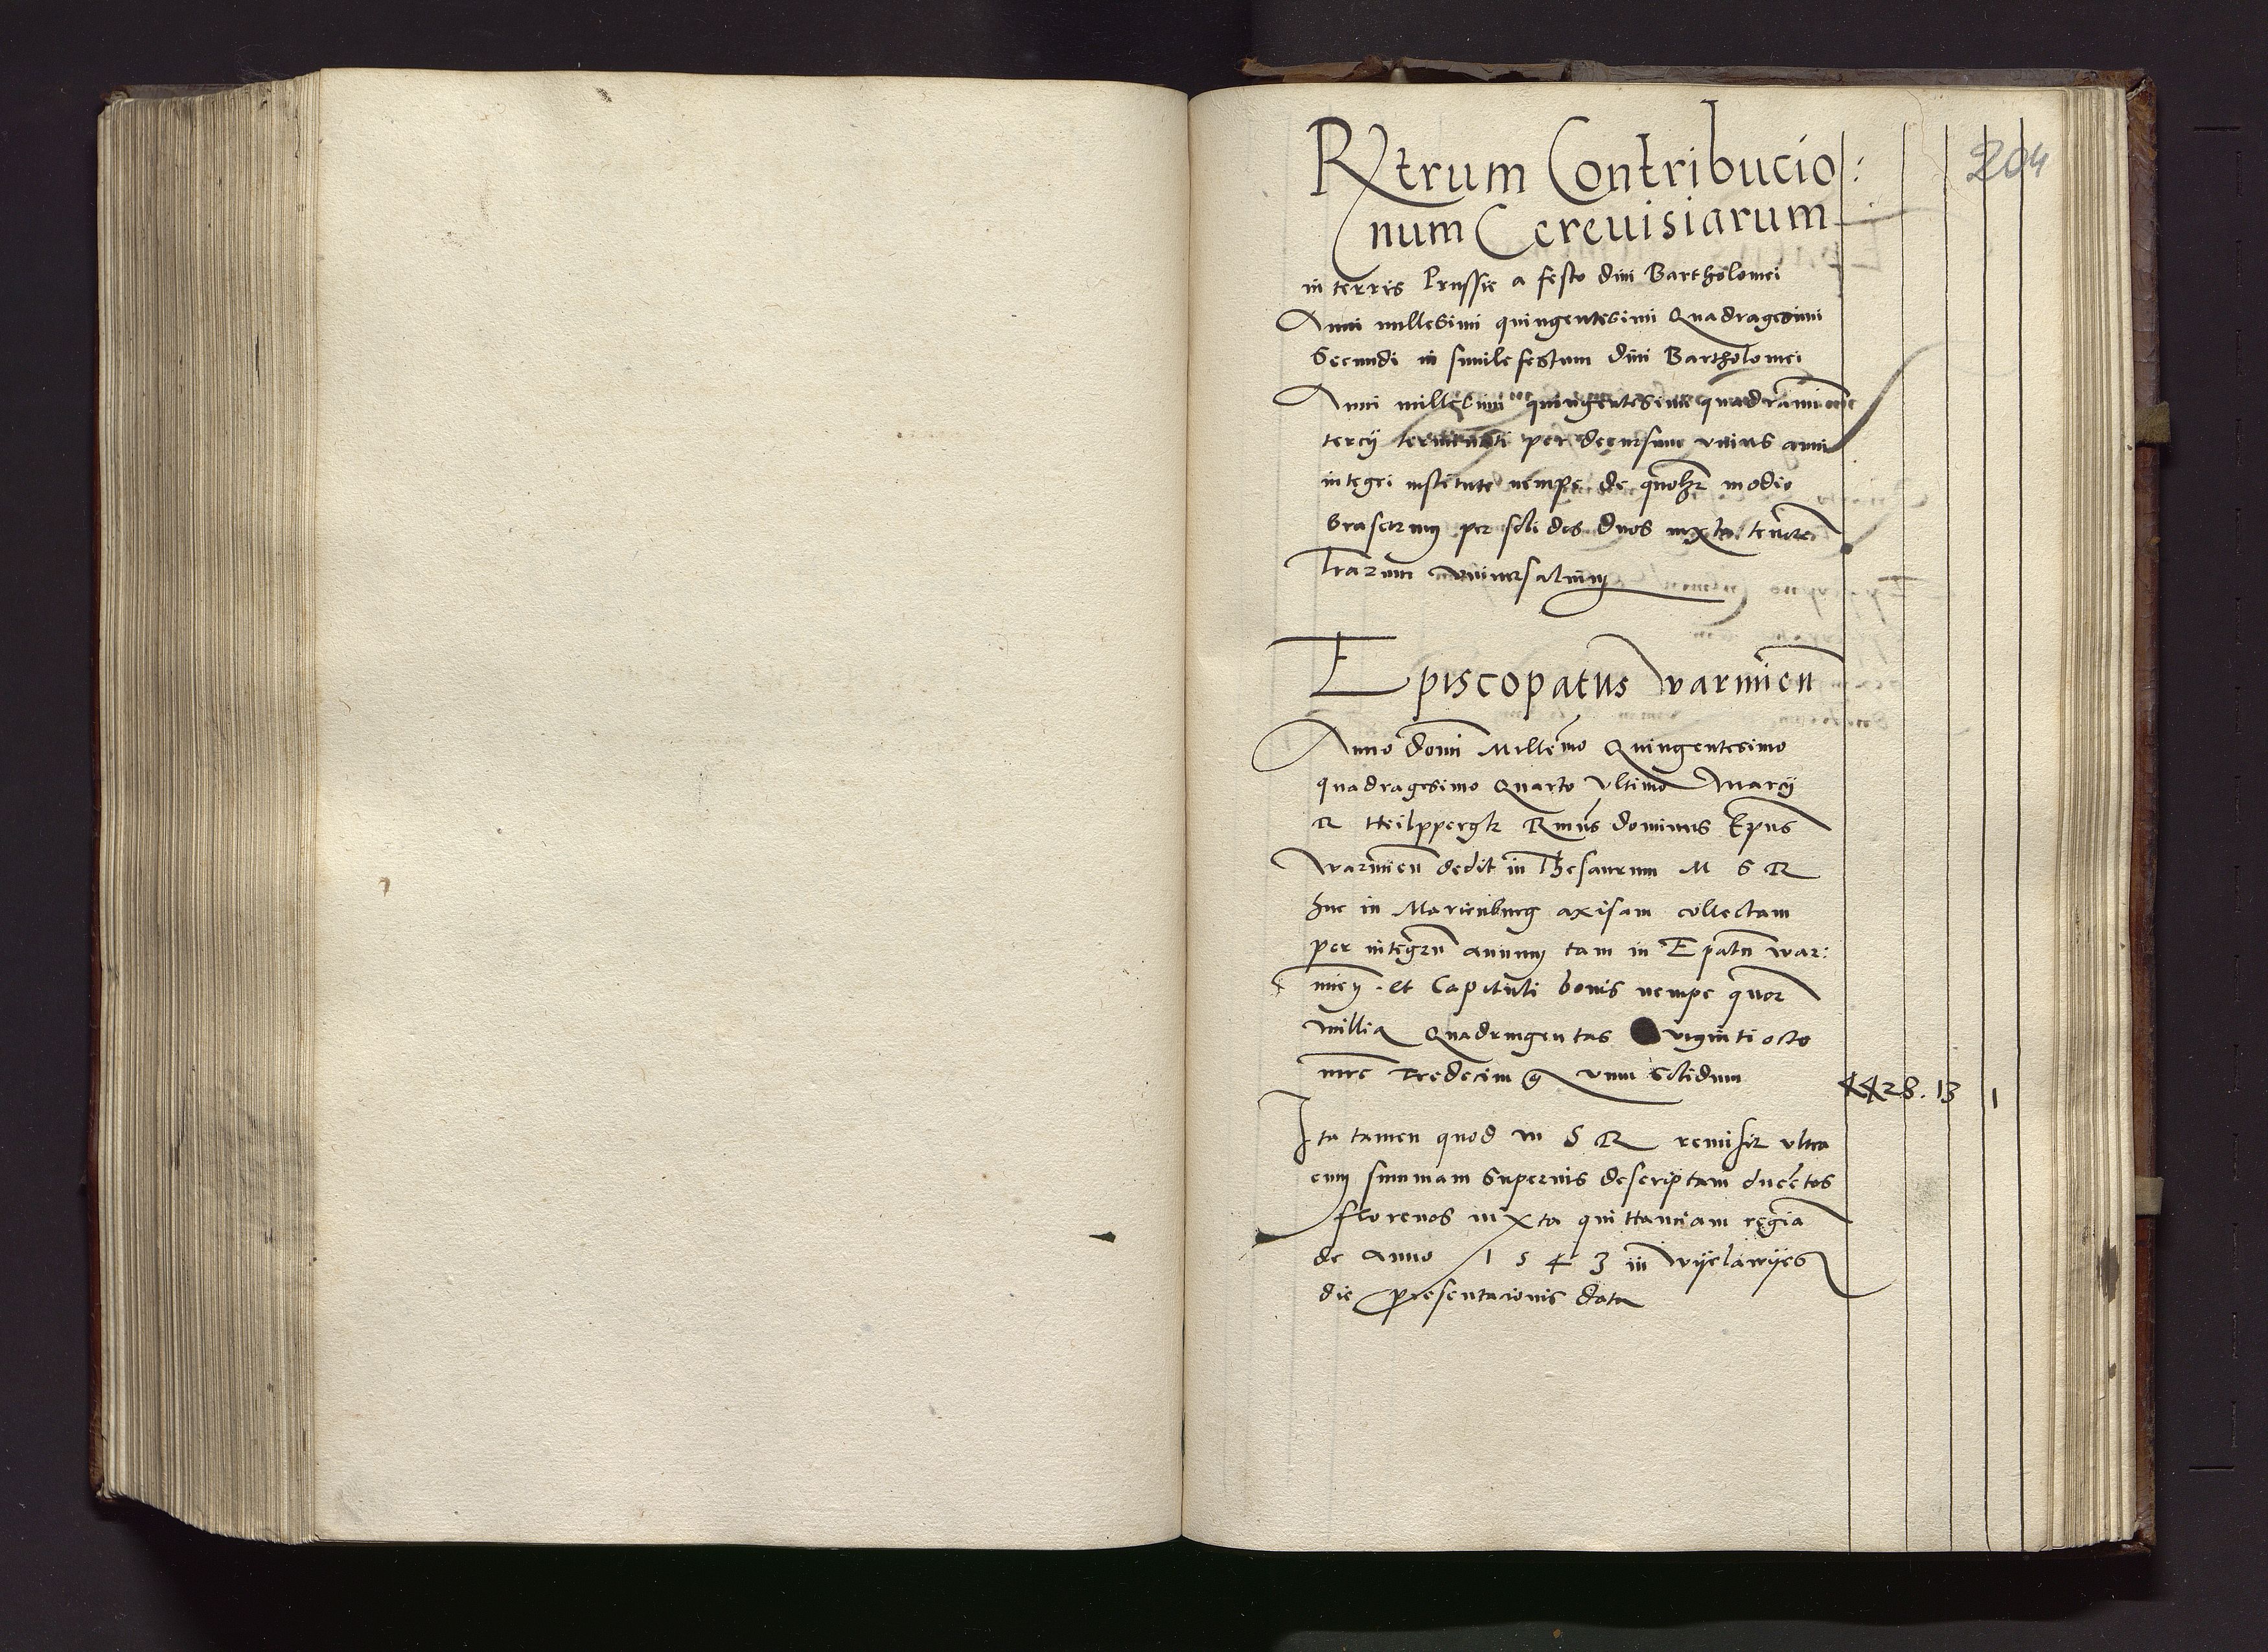 204
Rxtrum Contribucio:
num Cereuisiarum
in terris Prussie a festo diui Bartholomei
Anni millesimi quingentesimi Quadragesimi
Secundi in simile festum diui Bartholomei
Anni millesimi quingentesimi
tercij terminati per decursum vnius anni
integri institute nempe de quolibet modio
braseorum per solidos duos iuxta tenore
Lrarum vniuersalium
Episcopatus Varmien
Anno domi Millemo Quingentesimo
quadragesimo Quarto Vltimo Marcij
R Heilppergk Rmus dominus Epus
Warmien dedit in Thesaurum M S R
huc in Marienburg axisam collectam
per integru annum tam in Epatu war:
mien et Capituli bonis nempe quor
millia Quadringentas viginti octo
mrc Tredecim g vnu Solidum 4428. 13 1
Ita tamen quod M S R remisit vltra
eum summam Superius descriptam ducetos
florenos iuxta quittanciam regia
de Anno 1543 in
die presentacionis data